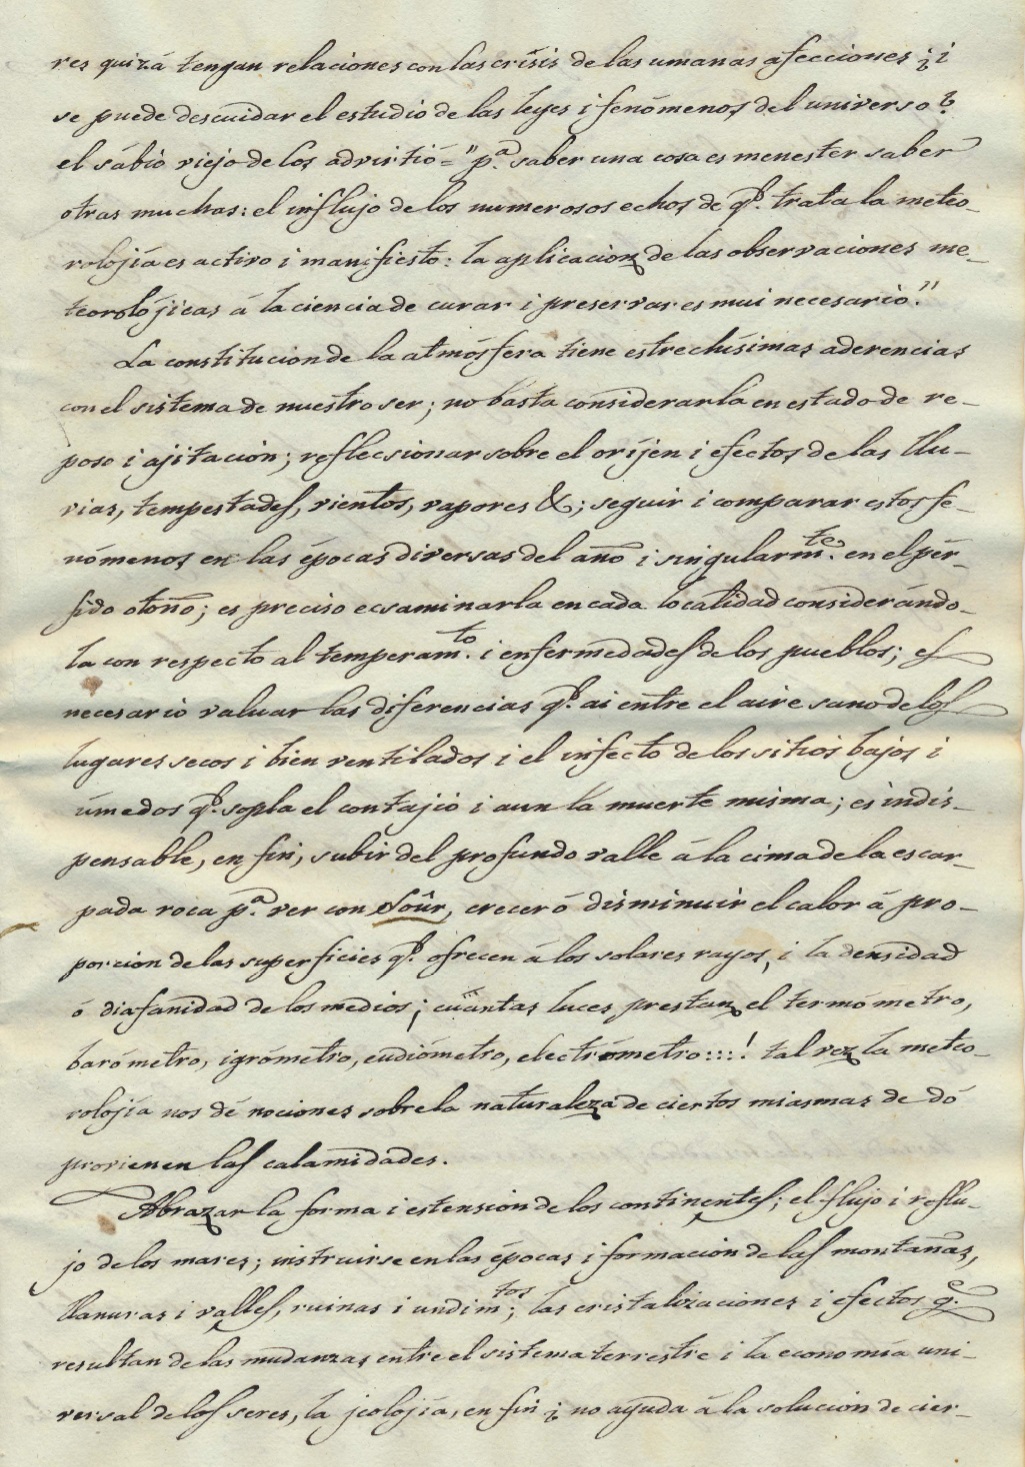 res quizá tengan relaciones con las crísis de las umanas afecciones ¿i
se puede descuidar el estudio de las leyes i fenómenos del universo?
el sábio viejo de los advirtió = "p.a saber una cosa es menester saber
otras muchas: el influjo de los numerosos echos de q.e trata la meteo-
rolojía es activo i manifiesto: la aplicacion de las observaciones me-
teorolójicas á la ciencia de curar i preservar es mui necesario."
La constitucion de la atmósfera tiene estrechísimas aderencias
con el sistema de nuestro ser; no basta considerarla en estado de re-
poso i ajitacion; reflecsionar sobre el oríjen i efectos de las llu-
vias, tempestades, vientos, vapores &; seguir i comparar estos fe-
nómenos en las épocas diversas del año i singularm.te en el pér-
fido otoño; es preciso ecsaminarla en cada localidad considerándo-
la con respecto al temperam.to i enfermedades de los pueblos; es
necesario valuar las diferencias q.e ai entre el aire sano de los
lugares secos i bien ventilados i el infecto de los sitios bajos i
úmedos q.e sopla el contajio i aun la muerte misma; es indis-
pensable, en fin, subir del profundo valle á la cima de la escar-
pada roca p.a ver con Soûr, crecer ó disminuir el calor á pro-
porcion de las superficies q.e ofrecen á los solares rayos, i la densidad
ó diafanidad de los medios; cuantas luces prestan el termómetro,
barómetro, igrómetro, eudiómetro, electrómetro:::! tal vez la meteo-
rolojía nos dé nociones sobre la naturaleza de ciertos miasmas de dó
provienen las calamidades.
Abrazar la forma i estension de los continentes; el flujo i reflu-
jo de los mares; instruirse en las épocas i formacion de las montañas,
llanuras i valles, ruinas i undim.tos; las cristalizaciones i efectos q.e
resultan de las mudanzas entre el sistema terrestre i la economía uni-
versal de los seres, la jeolojía, en fin ¿no ayuda á la solucion de cier-